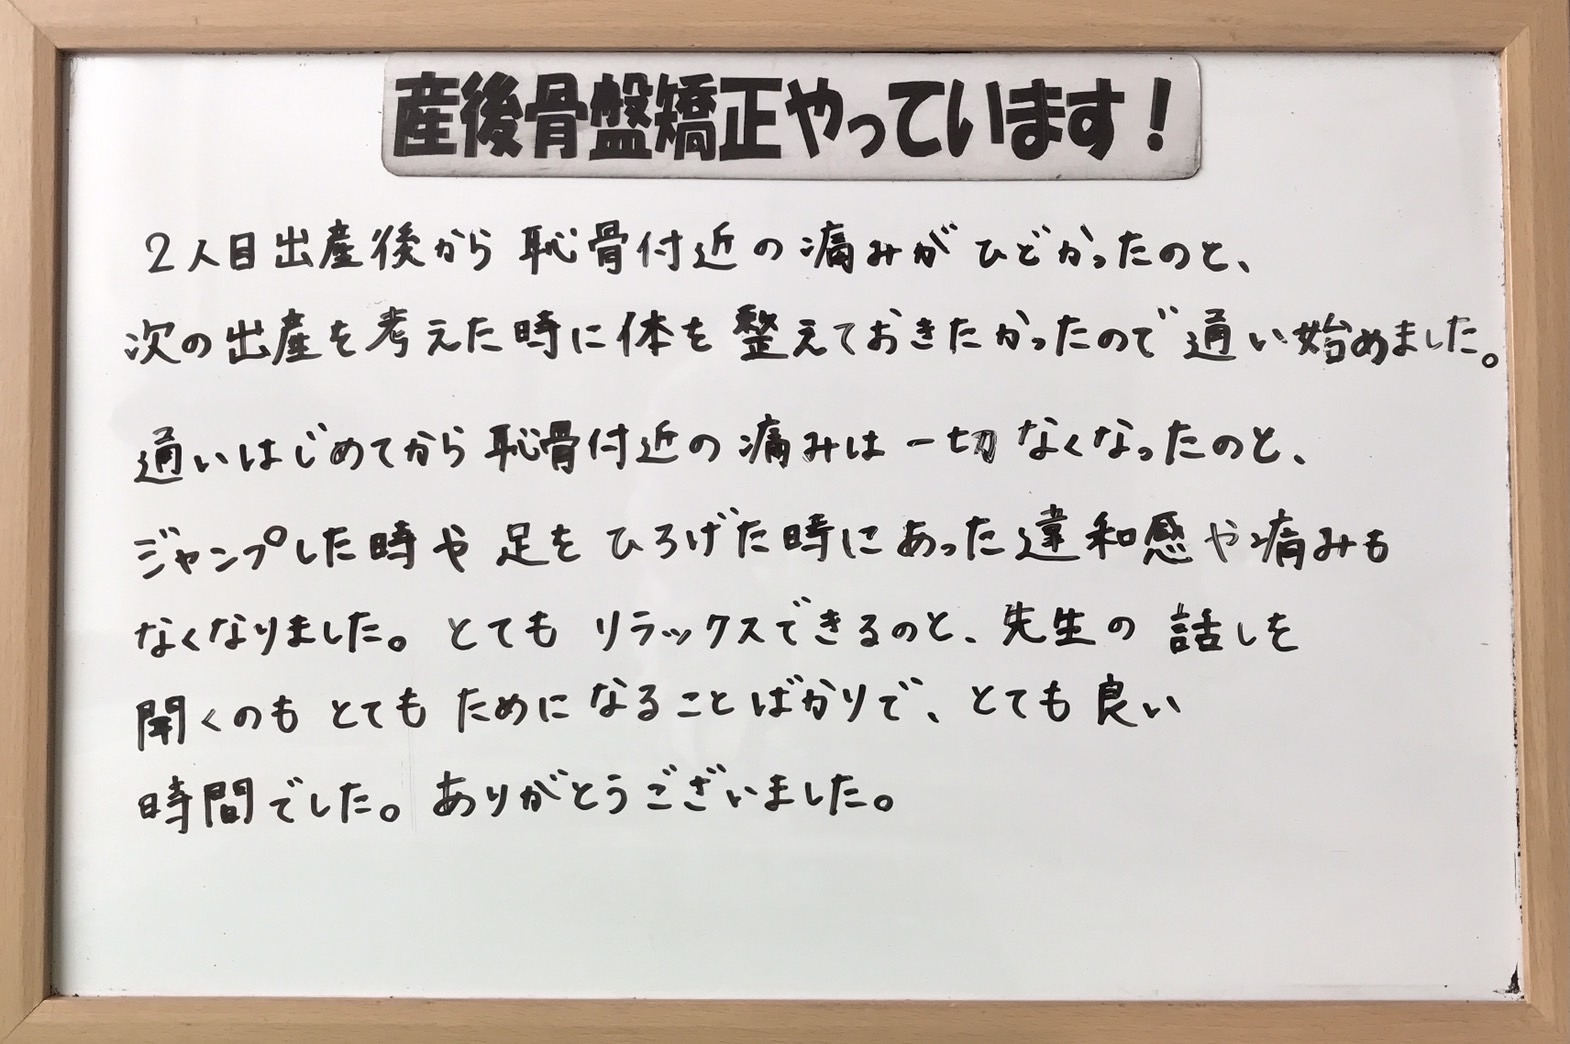 産後骨盤矯正やっています！
2人目出産後から恥骨付近の痛みがひどかったのと、
次の出産を考えた時に体を整えておきたかったので通い始めました。
通いはじめてから恥骨付近の痛みは一切なくなったのと、
ジャンプした時や足をひろげた時にあった違和感や痛みも
なくなりました。とてもリラックスできるのと、先生の話しを
聞くのもとてもためになることばかりで、とても良い
時間でした。ありがとうございました。